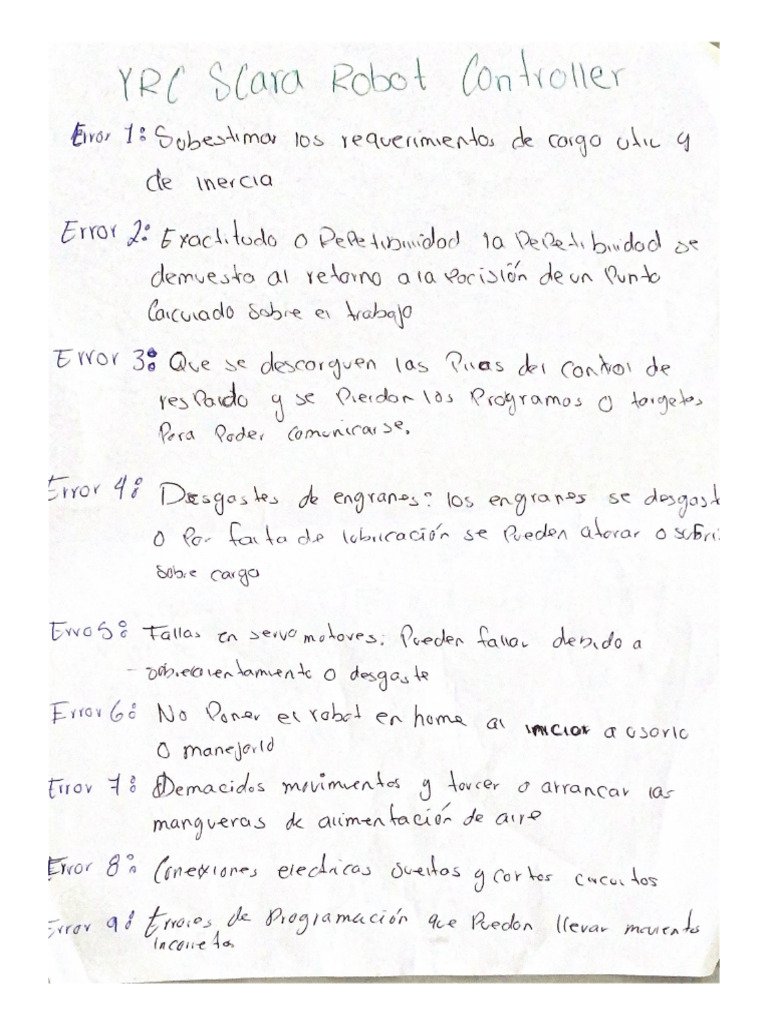 YRC Scara Robot Controller
Error 1: Subestimar los requerimientos de carga util y
de inercia
Error 2: Exactitudo o Repetibilidad la Repetibilidad se
demuesta al retorno a la Pocisión de un Punto
Calculado sobre el trabajo
Error 3: Que se descarguen las Pilas del control de
respaldo y se Pierdan los Programas o targetas
Para Poder comunicarse.
Error 4: Desgastes de engranes: los engranes se desgast
o Por falta de lubricación se Pueden atorar o sufri
sobre carga
Erro 5: Fallas en servo motores: Pueden fallar debido a
desgaste
Error 6: No Poner el robot en home al iniciar a usarlo
o manejarlo
Error 7: Demacidos movimientos y torcer o arrancar las
mangueras de alimentación de aire
Error 8: Conexiones electricas sueltas y cortos circuitos
Error 9: Errores de Programación que Puedan llevar movientos
incorretos